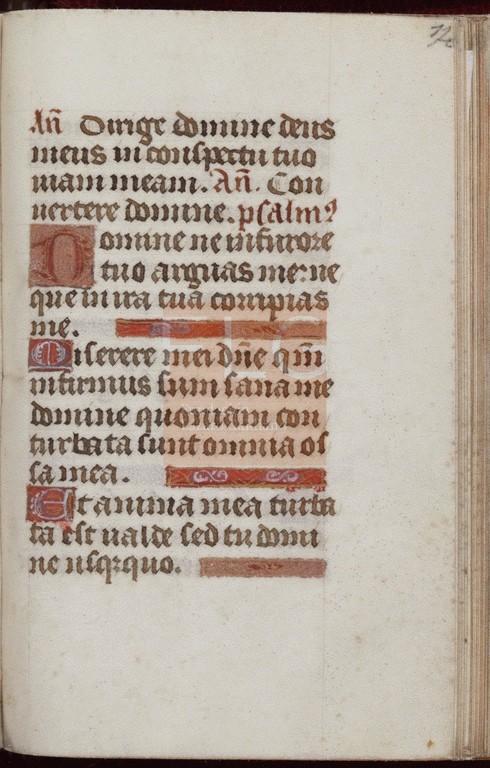 An̄ Dirige domine deus
meus in conspectu tuo
uiam meam. An̄. Con
uertere domine. psalmꝰ
Domine ne in furore
tuo arguas me: ne
que in ira tua corripias
me.
Miserere mei dn̄e qm̄
infirmus sum sana me
domine quoniam con
turbata sunt omnia os
sa mea.
Et anima mea turba
ta est ualde sed tu domi
ne usqꝫquo.